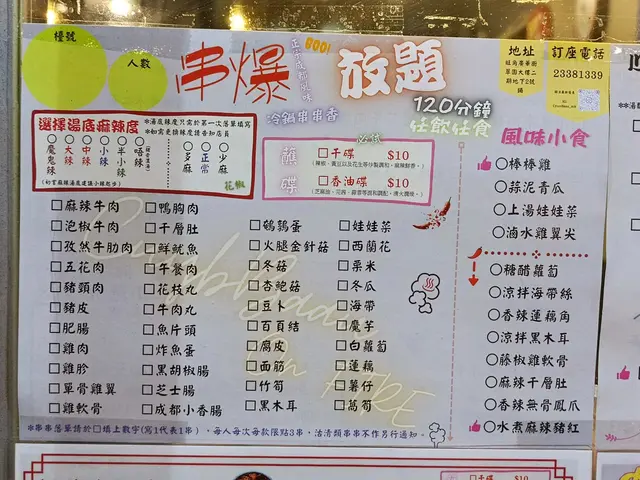 檯號
人數
串爆
正宗成都風味
BOO!
冷鍋串串香
放題
120分鐘
任飲任食
地址
訂座電話
23381339
選擇湯底麻辣度
*湯底辣度只需於第一次落單填寫
*如需更換辣度請告知店員
魔鬼辣
大辣
中辣
小辣
半小辣
唔辣
多麻
正常
少麻
花椒
蘸碟
必試
□干碟 $10
□香油碟 $10
□麻辣牛肉
□泡椒牛肉
□孜然牛肋肉
□五花肉
□豬頸肉
□豬皮
□肥腸
□雞肉
□雞胗
□單骨雞翼
□雞軟骨
□鴨胸肉
□千層肚
□鮮魷魚
□午餐肉
□花枝丸
□牛肉丸
□魚片頭
□炸魚蛋
□黑胡椒腸
□芝士腸
□成都小香腸
□鵪鶉蛋
□火腿金針菇
□冬菇
□杏鮑菇
□豆卜
□百頁結
□腐皮
□面筋
□竹筍
□黑木耳
□娃娃菜
□西蘭花
□粟米
□冬瓜
□海帶
□魔芋
□白蘿蔔
□蓮藕
□薯仔
□萵筍
風味小食
○棒棒雞
○蒜泥青瓜
○上湯娃娃菜
○滷水雞翼尖
○糖醋蘿蔔
○涼拌海帶絲
○香辣蓮藕角
○涼拌黑木耳
○藤椒雞軟骨
○麻辣千層肚
○香辣無骨鳳爪
○水煮麻辣豬紅
*串串落單請於□填上數字(寫1代表1串)，每人每次每款限點3串，沽清類串串不作另行通知。
□干碟 $10